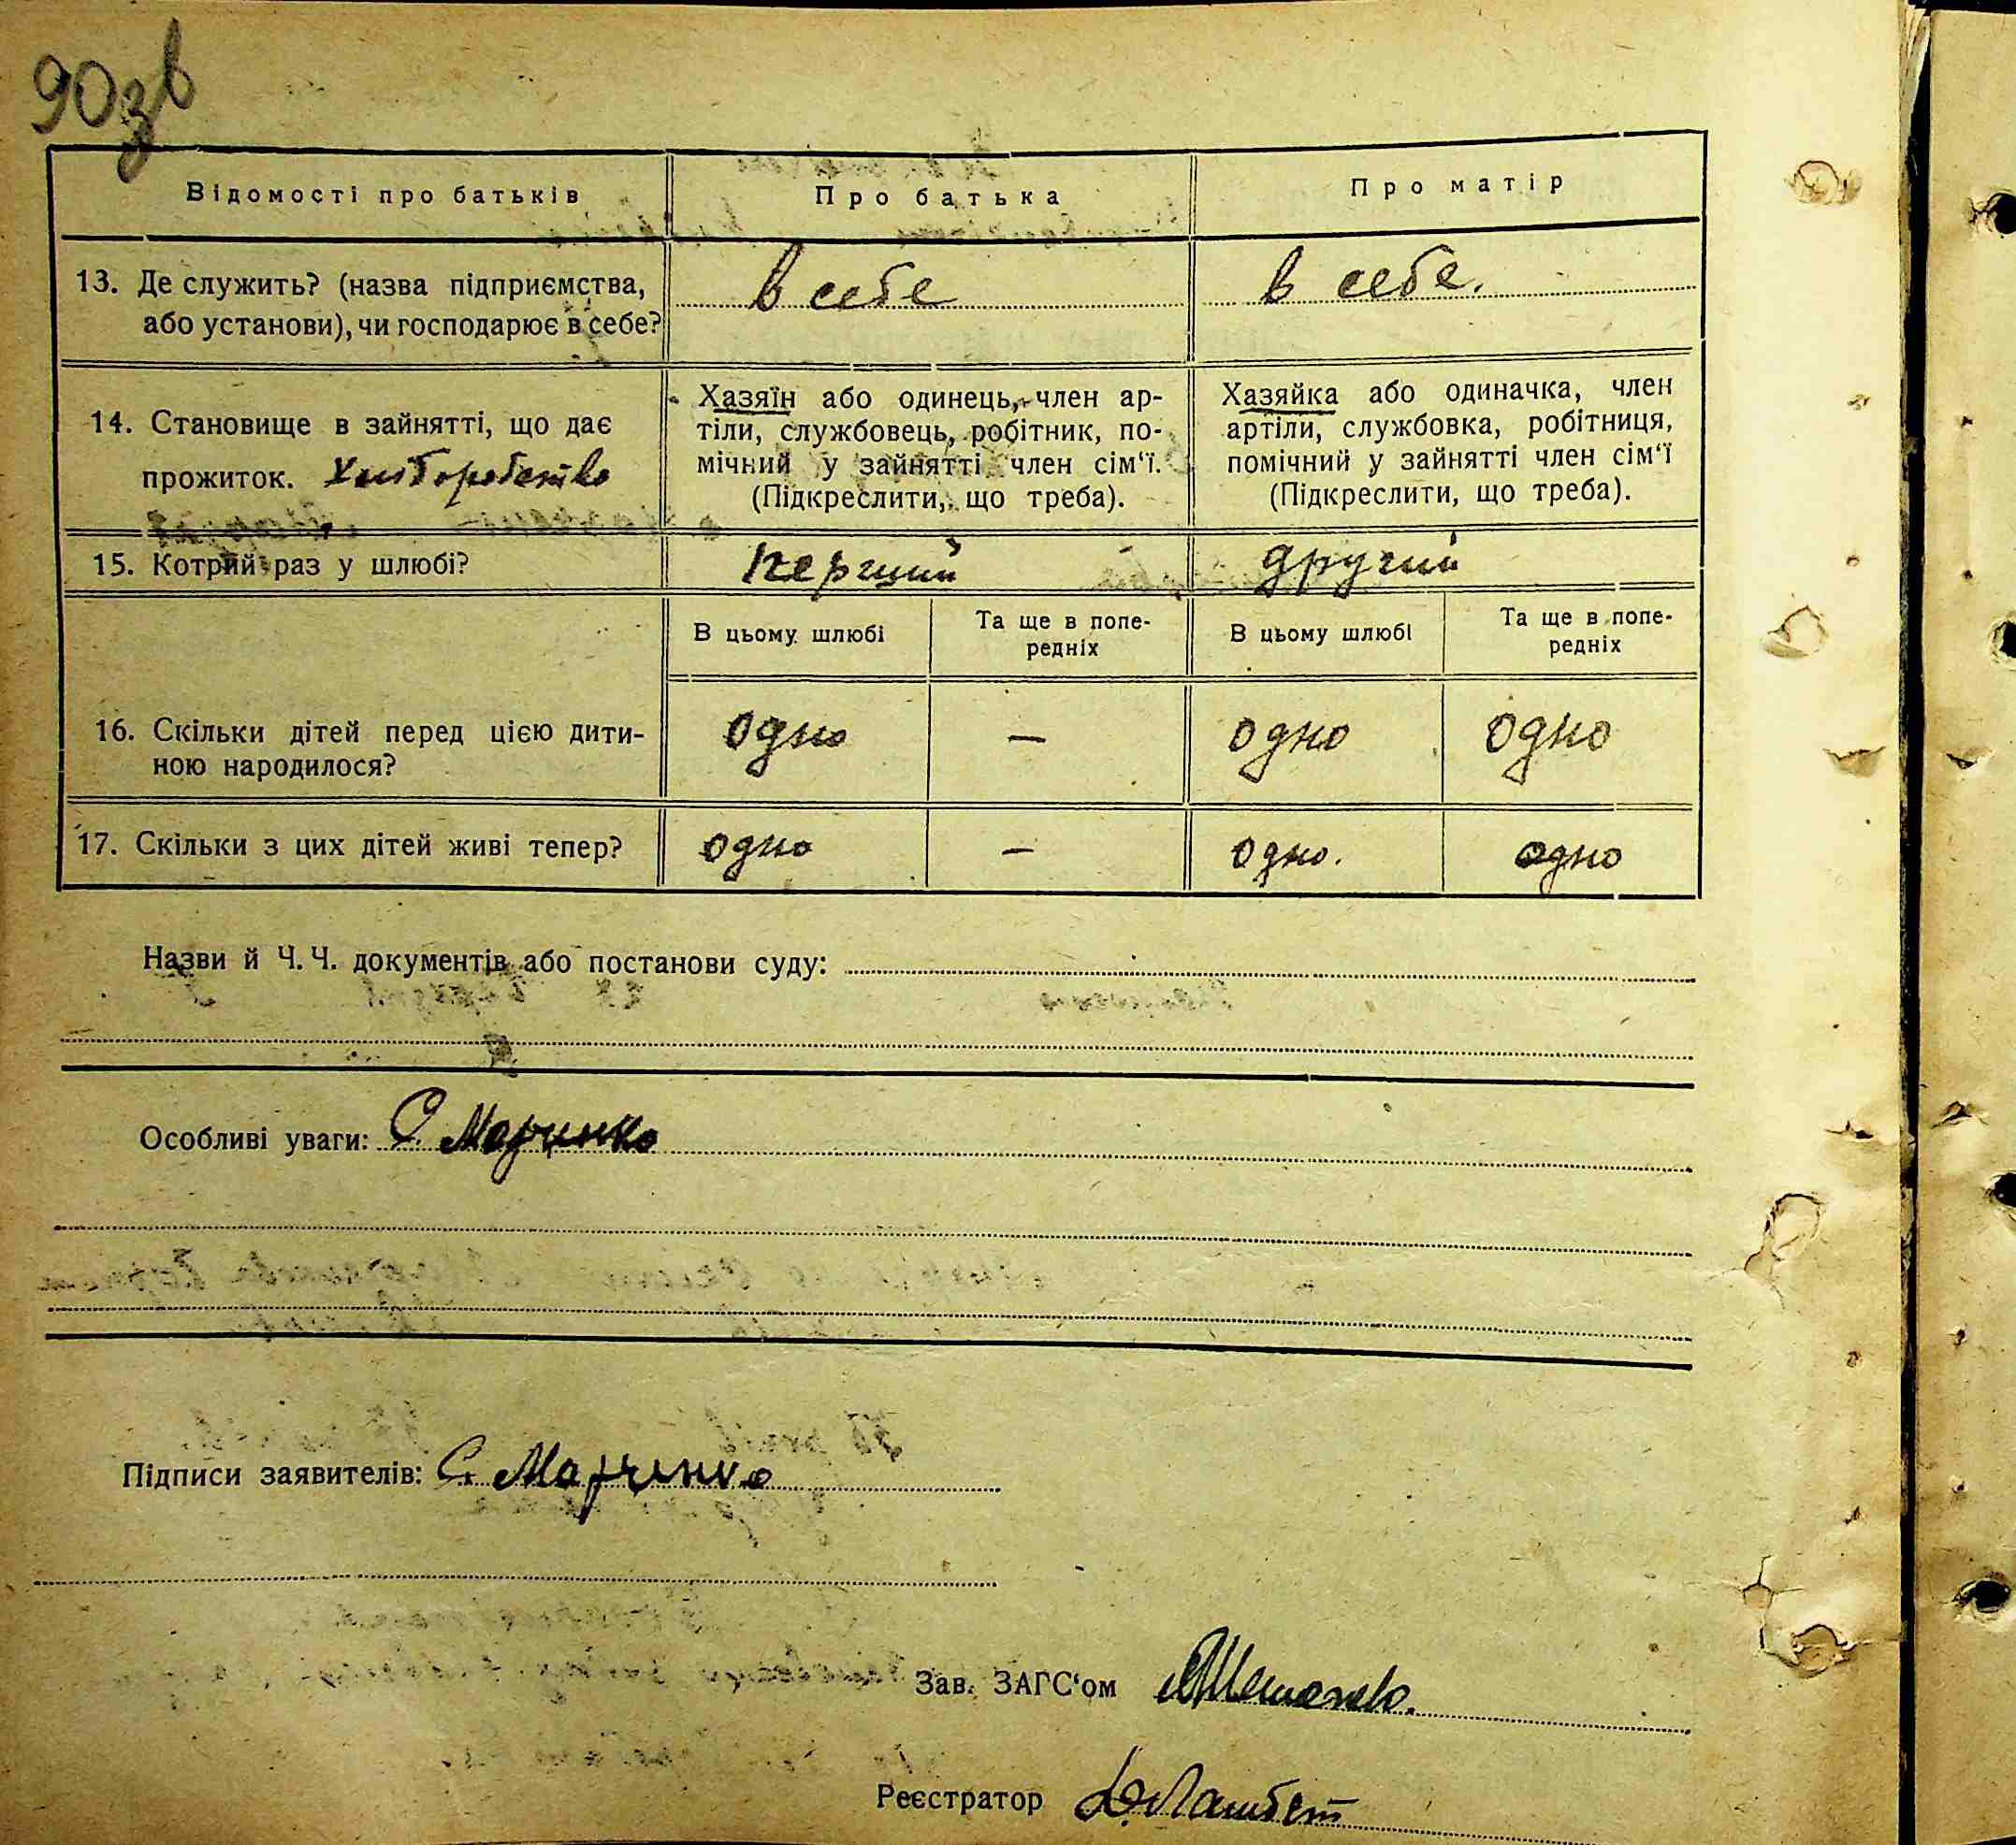 90зв
Відомості про батьків
Про батька
Про матір
13. Де служить? (назва підприємства,
або установи), чи господарює в себе?
в себе
в себе.
14. Становище в зайнятті, що дає
прожиток. Хліборобство
Хазяїн або одинець, член ар-
тіли, службовець, робітник, по-
мічний у зайнятті член сім‘ї.
(Підкреслити, що треба).
Хазяйка або одиначка, член
артіли, службовка, робітниця,
помічний у зайнятті член сім‘ї
(Підкреслити, що треба).
15. Котрий раз у шлюбі?
перший
другий
В цьому шлюбі
Та ще в попе-
редніх
В цьому шлюбі
Та ще в попе-
редніх
16. Скільки дітей перед цією дити-
ною народилося?
одно
—
одно
одно
17. Скільки з цих дітей живі тепер?
одно
—
одно.
одно
Назви й Ч. Ч. документів або постанови суду:
Особливі уваги: С. Марченко
Підписи заявителів: С. Марченко
Зав. ЗАГС‘ом
Реєстратор